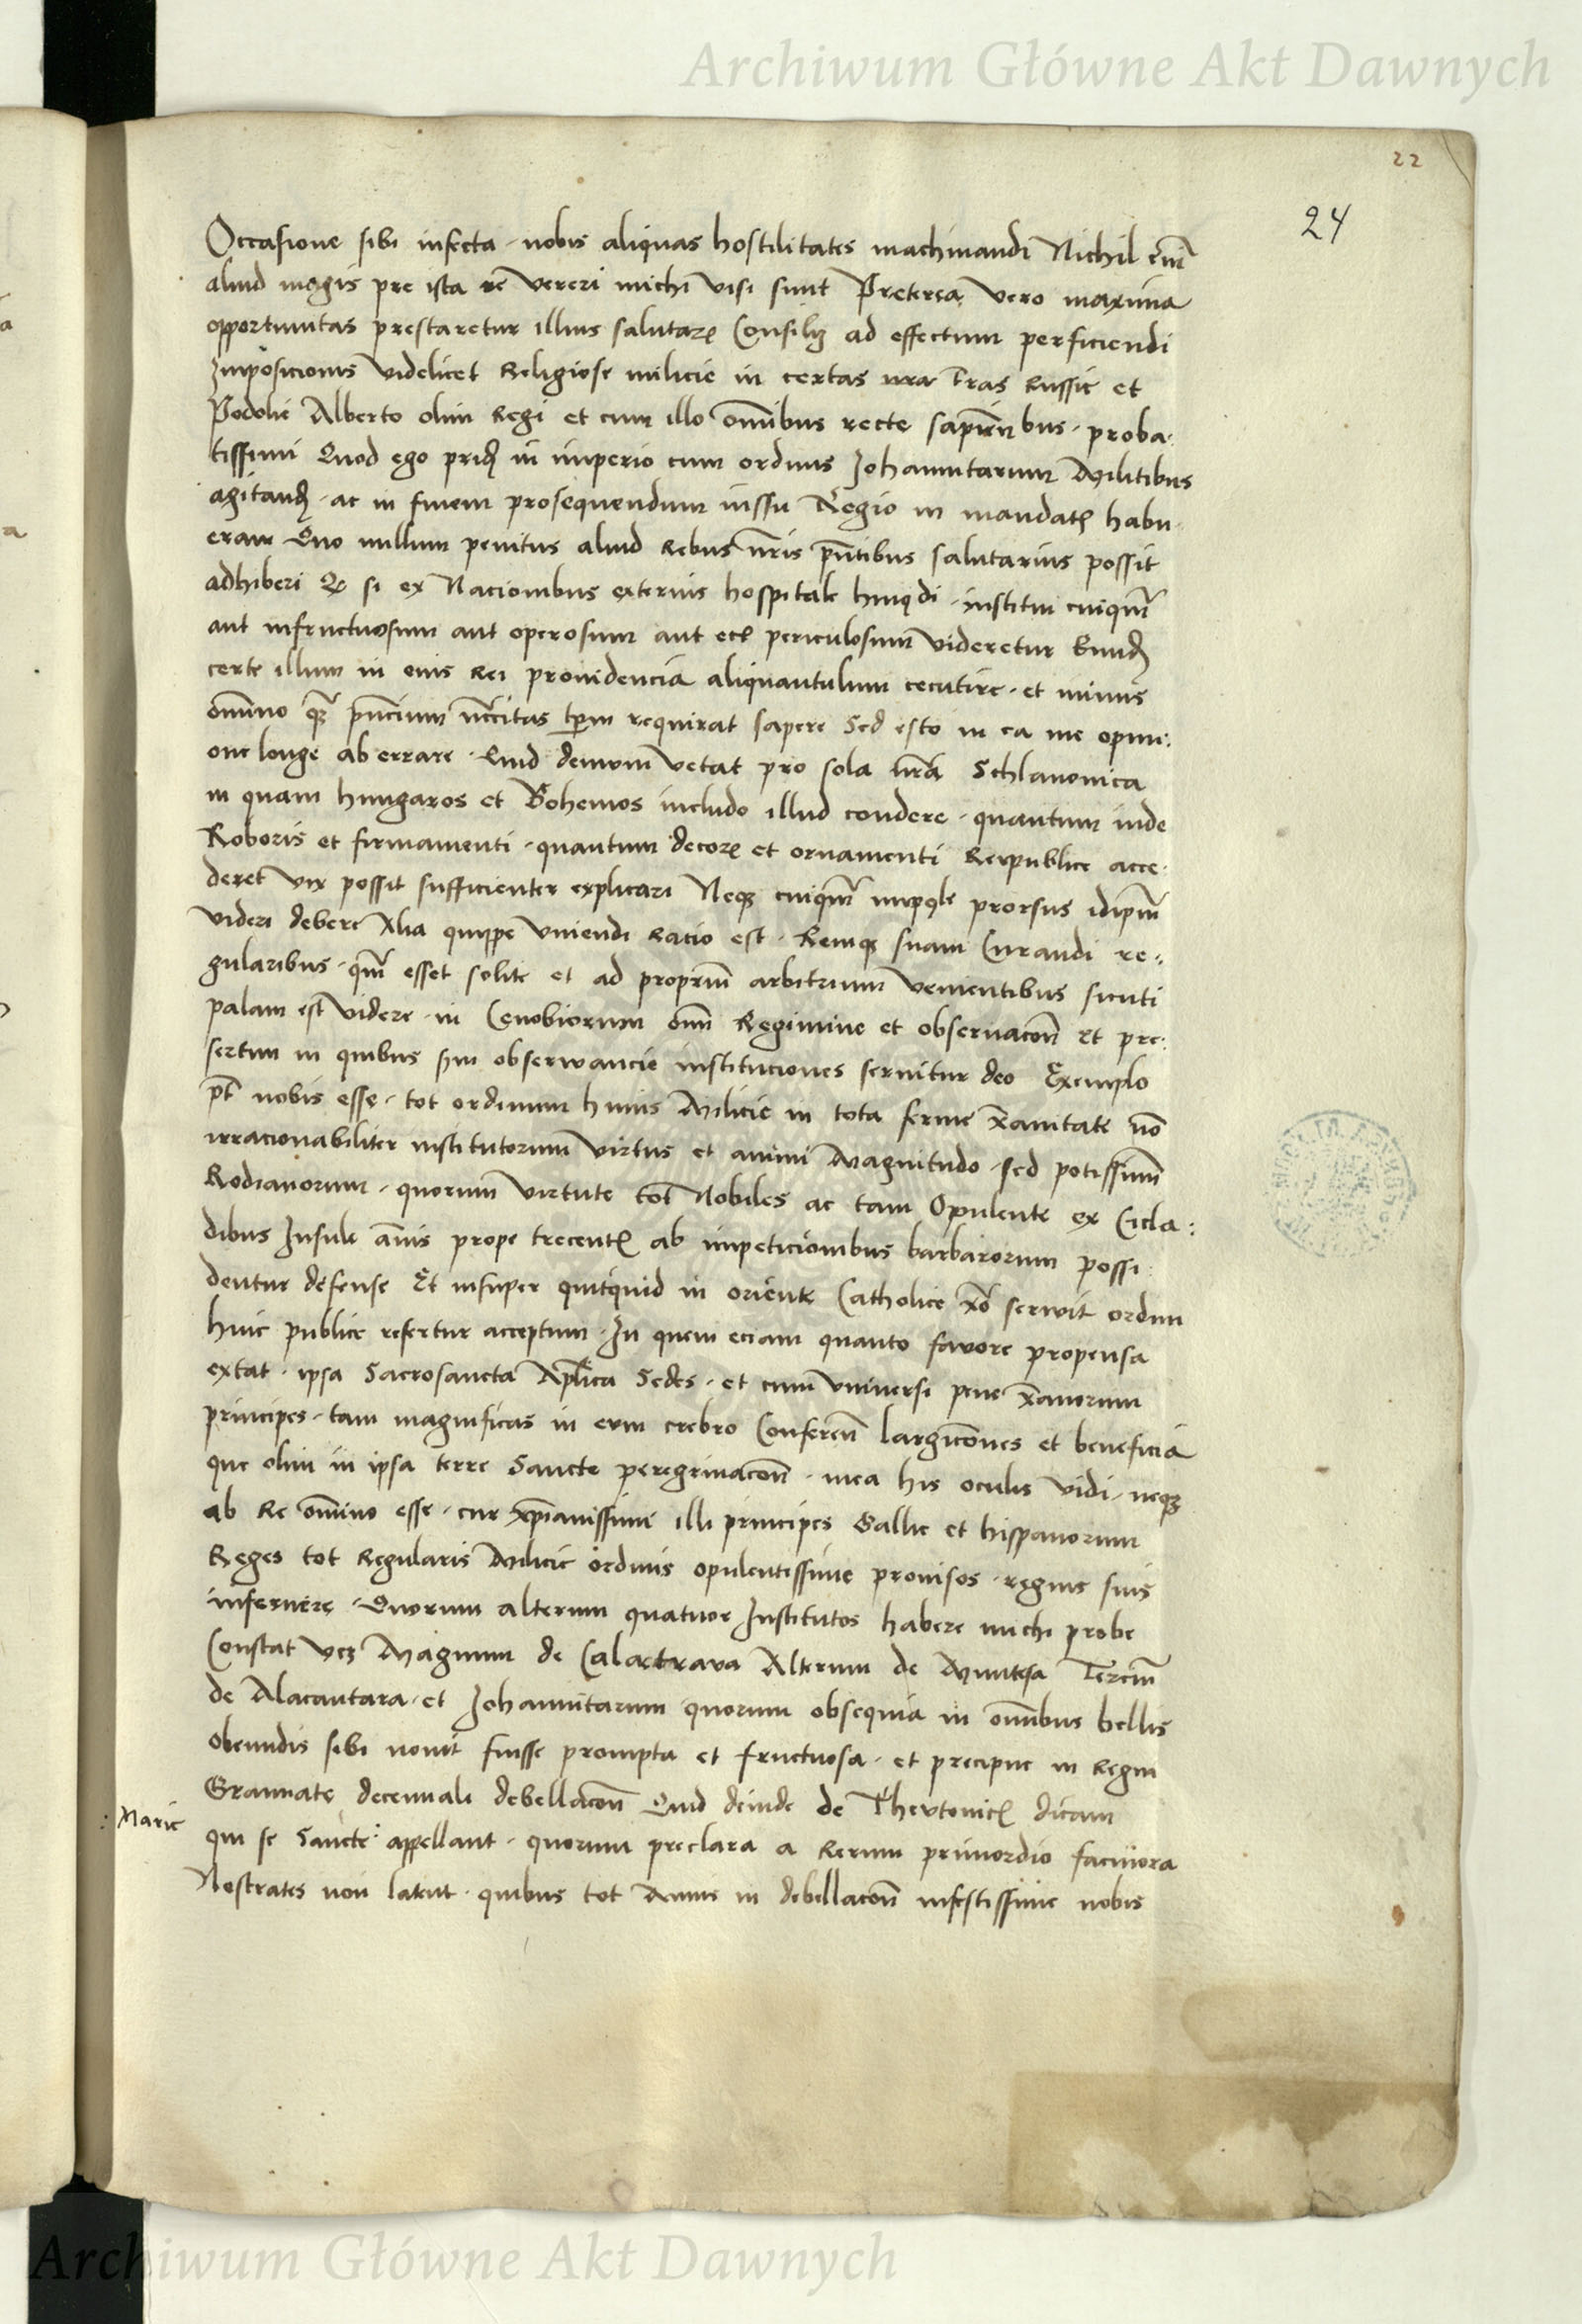 Archiwum Główne Akt Dawnych
22
24
Occasione sibi infecta · nobis aliquas hostilitates machinandi Nichil eni͞m
aliud magis pre ista re͞ vereri michi visi sunt Preterea vero maxima
opportunitas prestaretur illius salutaꝝ Consilij ad effectum perficiendi
Imposicionis videlicet Religiose milicie in certas nr͞as Tr͞as Russie et
Podolie Alberto olim Regi et cum illo om͞ibus recte sapie͞ntibus · proba:
tissimi Quod ego prid in imperio cum ordinis Johannitarum Militibus
agitand · ac in finem prosequendum iussu Regio in mandatꝭ habu:
eram Quo nullum penitus aliud Rebus nr͞is pn͞tibus salutarius possit
adhiberi Qꝫ si ex Nacionibus externis hospitale hmꝰdi · institui cuiqua͞m
aut infructuosum aut operosum aut ecꝫ periculosum videretur Eund
certe illum in eius Rei prouidencia aliquantulum cecutire · et minus
om͞ino qꝫ pn͞cium nc͞citas tp͞rum requirat sapere Sed esto in ea me opini:
one longe ab errare · Quid demum vetat pro sola nr͞a Schlauonica
in quam hungaros et Bohemos includo illud condere · quantum inde
Roboris et firmamenti · quantum decoꝝ et ornamenti Reipublice acce:
deret vix possit sufficienter explicari Neqꝫ cuiqua͞m prorsus idip͞m
videri debere Alia quippe viuendi Racio est · Remqꝫ suam Curandi re:
gularibus · qua͞m esset solite et ad propriu͞m arbitrium venientibus sicuti
palam est videre · in Cenobiorum om͞i Regimine et obseruaco͞n et pre:
sertim in quibus obserwancie instituciones seruitur deo Exemplo
pt͞ nobis esse · tot ordinum huius Milicie in tota ferme xa͞nitate no͞
irracionabiliter institutorum virtus et animi Magnitudo · sed potissimu͞m
Rodianorum · quorum virtute tot Nobiles ac tam Opulente ex Cicla:
dibus Insule an͞nis prope trecentꝭ ab impeticionibus barbarorum possi:
dentur defense Et insuper quitquid in oriente Catholice xo͞ serwit ordini
huic publice refertur acceptum · In quem eciam quanto favore propensa
extat · ipsa Sacrosancta Aplica Sedes · et cum vniuersi pene xa͞norum
principes · tam magnificas in eum crebro Conferen͞ largico͞nes et beneficia
que olim in ipsa terre Sancte peregrinaco͞n · mea his oculis vidi · neqꝫ
ab Re om͞ino esse · cur xp͞ianissimi illi principes Gallie et hispanorum
Reges tot Regularis Milicie ordinis opulentissime prouisos · regnis suis
inseruere · Quorum alterum quatuor Institutos habere michi probe
Constat vcꝫ Magnum de Calactrava Alterum de Muntesa Terciu͞m
de Alacantara · et Johannitarum quorum obsequia in om͞ibus bellis
obeundis sibi nouit fuisse prompta et fructuosa · et precipue in Regni
Grannate decennali debellaco͞n Quid deinde de Thevtonicꝭ dicam
: Marie
qui se Sancte : appellant · quorum preclara a Rerum primordio facinora
Nostrates non latent · quibus tot Annis in debellaco͞n infestissime nobis
Archiwum Główne Akt Dawnych